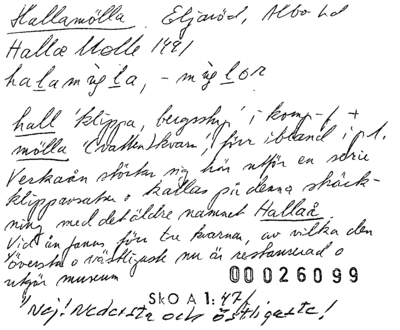 Hallamölla. Eljaröd, Albo hd
Halla Mølle 1491
halamøla, -mølor
hall 'klippa, bergsstup' i komp.-f. +
mölla '(vatten)kvarn', förr ibland i pl.
Verkaån störtar sig här utför en serie
klippavsatser o. kallas på denna sträck-
ning med det äldre namnet Hallaå.
Vid ån fanns förr tre kvarnar, av vilka den
översta o västligaste nu är restaurerad o
utgör museum
00026099
SkO A 1:47/
"Nej! Nedersta och östligaste!